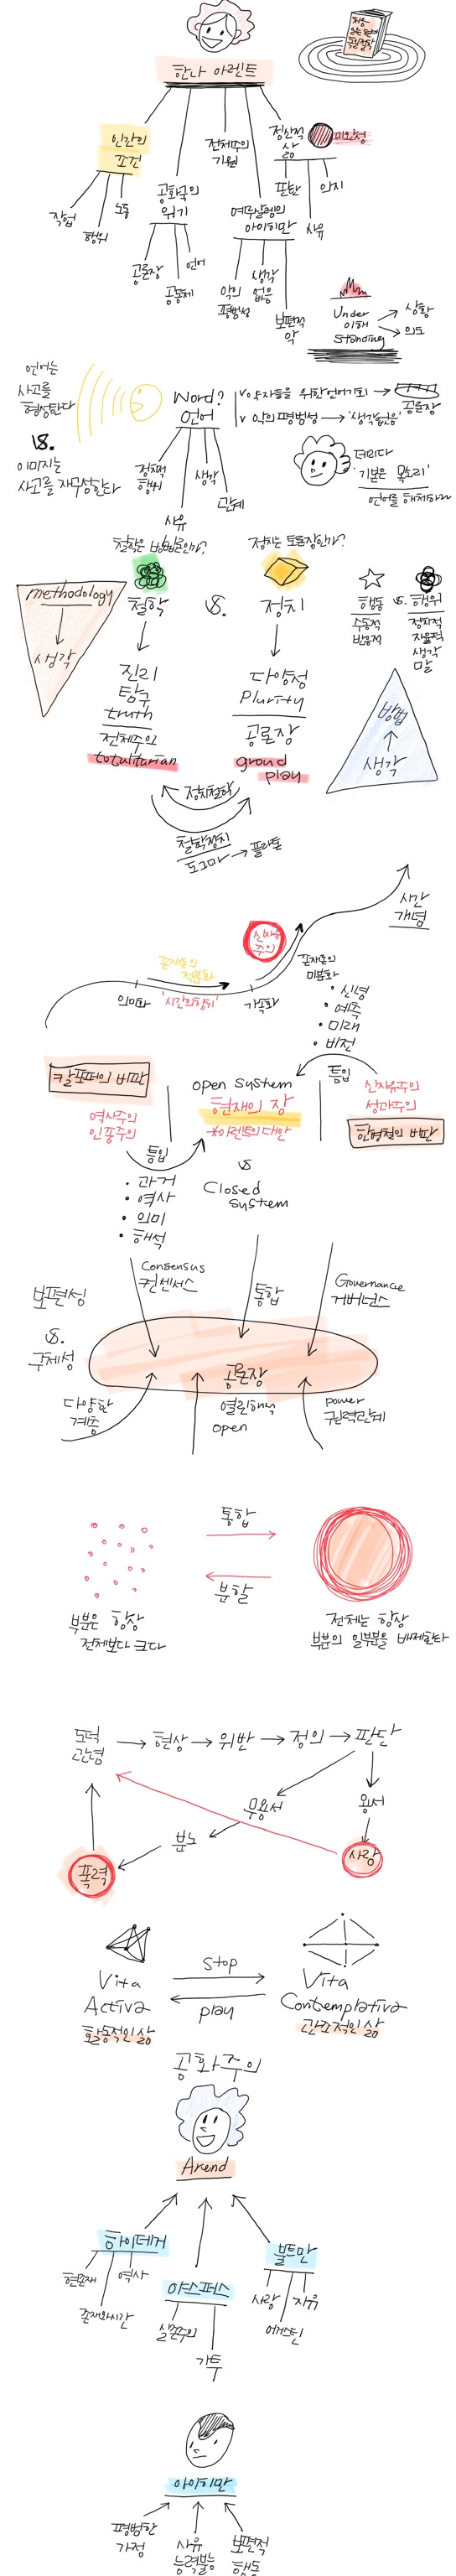 한나 아렌트
인간의
조건
작업
행위
노동
공화국의
위기
공론장
공동체
언어
전체주의
기원
예루살렘의
아이히만
악의
평범성
생각
없음
보편적
악
정신적
삶
미완성
판단
사유
의지
Under
이해
Standing
상황
의도
언어는
사고를
형성한다
VS.
이미지는
사고를 재구성한다
Word?
언어
정치적
행위
사유
생각
관계
v 약자들을 위한 언어기회 → 공론장
v 악의 평범성 → '생각없음'
데리다
'기본은 목소리'
언어를 해체하라
철학은 방법론인가?
정치는 토론장인가?
methodology
생각
철학
VS.
정치
행동
수동적
반응적
VS.
행위
정치적
자율적
생각
말
진리
탐구
truth
전체주의
totalitarian
다양성
Plurity
공론장
ground
play
방법
생각
정치철학
철학정치
도그마 → 플라톤
시간
개념
신자유
주의
존재론의
적분화
의미화
'시간의 향기'
가속화
존재론의
미분화
• 신념
• 예측
• 미래
• 비전
칼포퍼의 비판
역사주의
인종주의
틈입
• 과거
• 역사
• 의미
• 해석
open system
현재의 장
*아렌트의 대안
VS
Closed
system
틈입
신자유주의
성과주의
한병철의 비판
보편성
VS.
구체성
Consensus
컨센서스
통합
Governance
거버넌스
공론장
다양한
계층
열린해석
open
power
권력관계
통합
분할
부분은 항상
전체보다 크다
전체는 항상
부분의 일부분을 배제한다
도덕
관념
→ 현상 → 위반 → 정의 → 판단
무용서
용서
분노
폭력
사랑
Vita
Activa
활동적인 삶
stop
play
Vita
Contemplativa
관조적인 삶
공화주의
Arend
하이데거
현존재
존재와시간
역사
야스퍼스
실존주의
기투
불트만
사랑
어거스틴
자유
아이히만
평범한
가정
사유
능력불능
보편적
행동